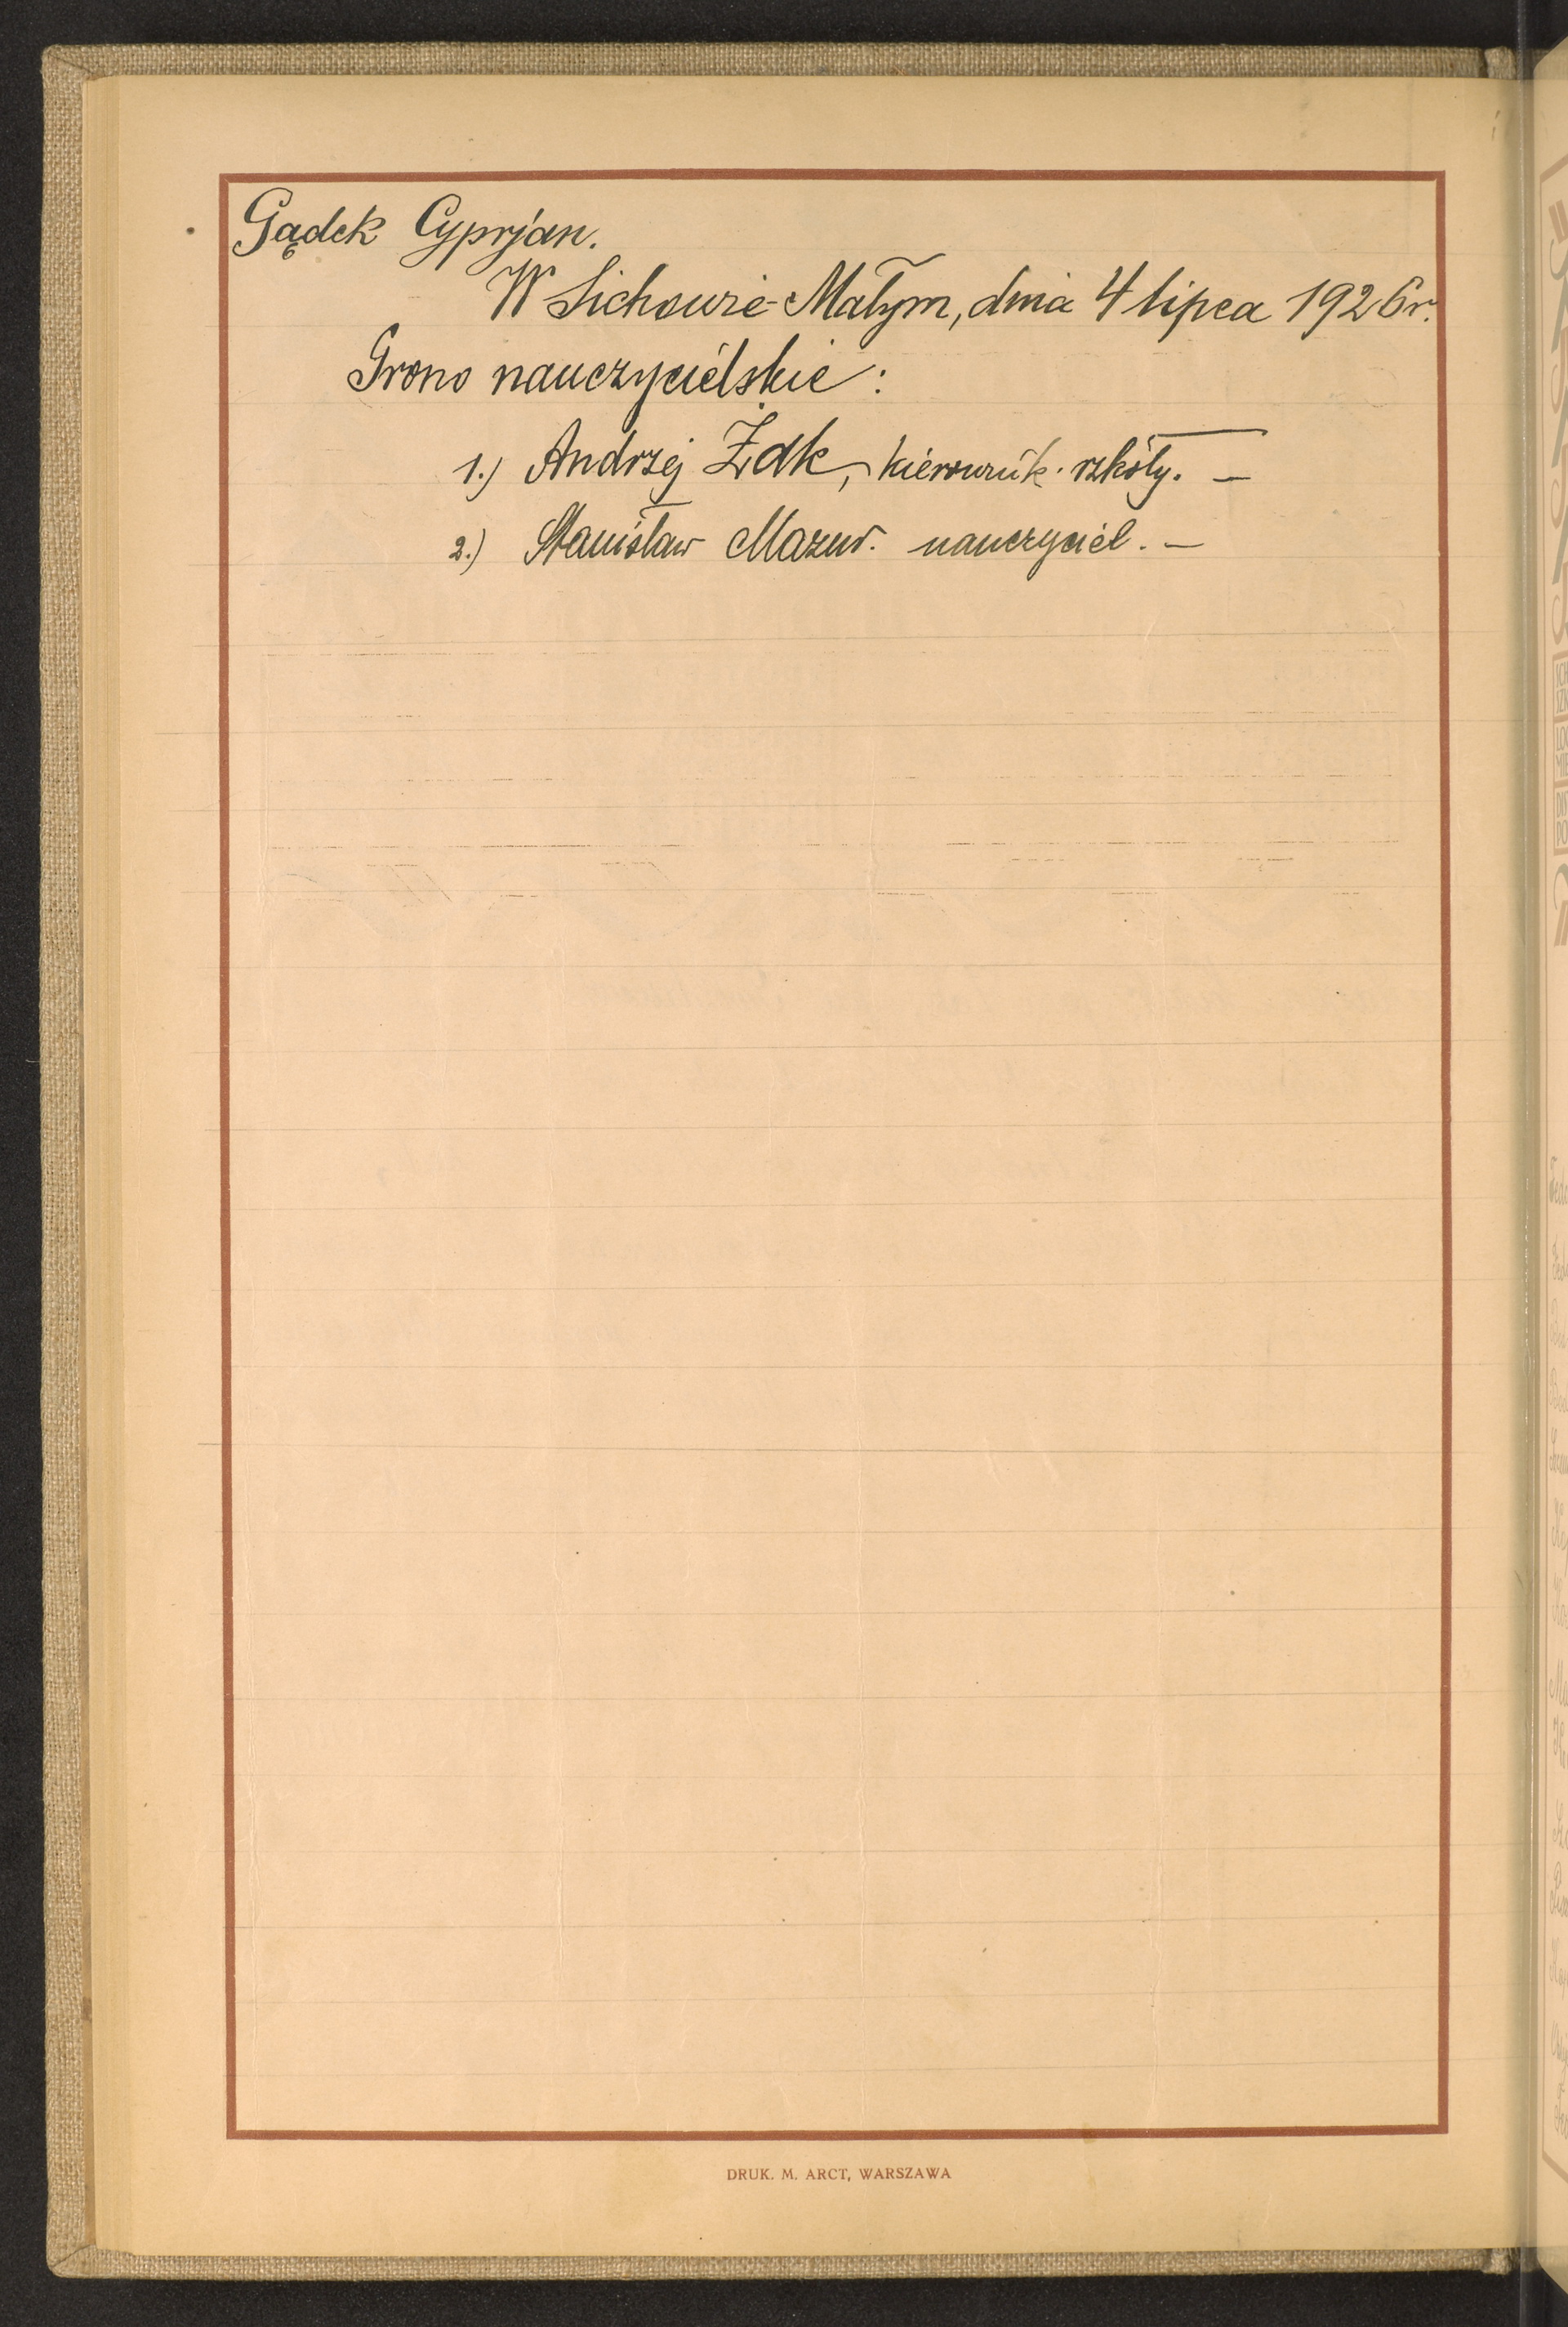 Gądek Cyprjan.
W Sichowie-Małym, dnia 4 lipca 1926r.
Grono nauczycielskie:
1.) Andrzej Żak, kierownik szkoły. —
2.) Stanisław Mazur. nauczyciel. —
DRUK. M. ARCT, WARSZAWA